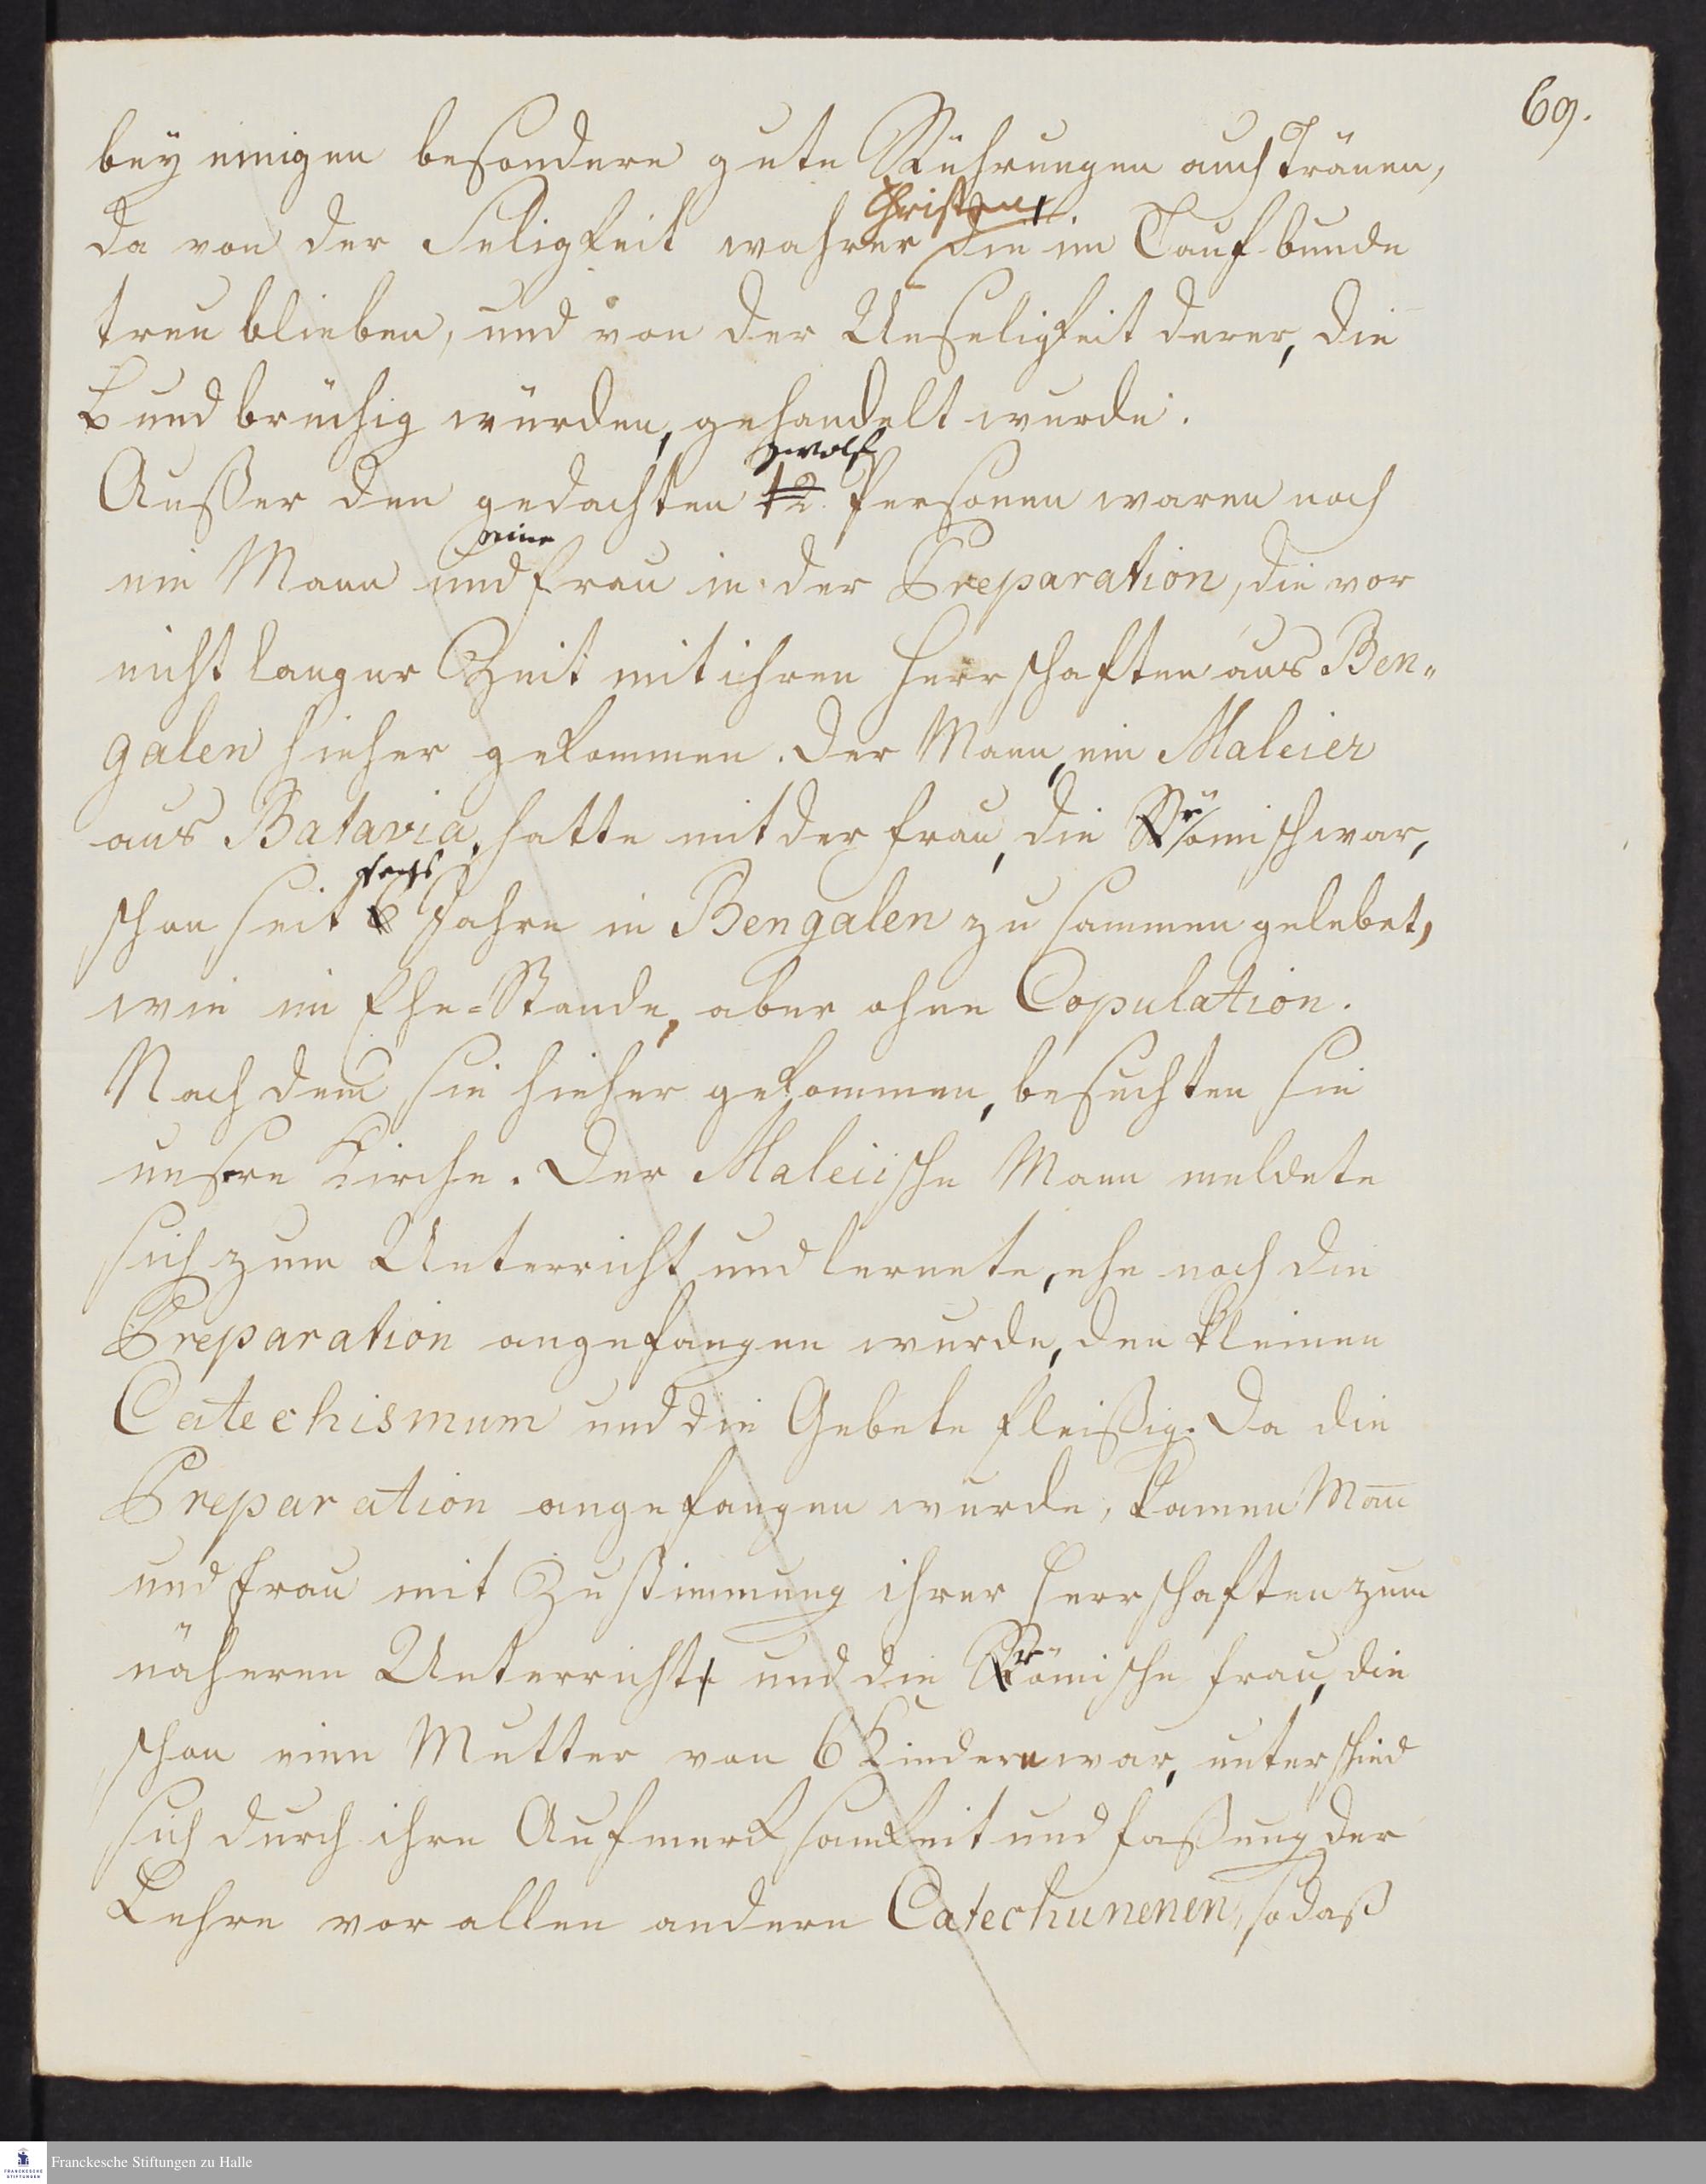 69.
bey einigen besondere gute Rührungen auch Tränen,
Christen,
da von der Seligkeit wahrer die im Taufbunde
treu blieben, und von der Unseligkeit derer, die
Bundbrüchig würden, gehandelt wurde.
zwolf
Außer den gedachten 12. Personen waren noch
eine
ein Mann und Frau in der Preparation, die vor
nicht langer Zeit mit ihren Herrschaften aus Ben„
galen hieher gekommen. Der Mann, ein Maleier
aus Batavia, hatte mit der Frau, die Römisch war,
sechs
schon seit 6 Jahre in Bengalen zusammen gelebet,
wie im Ehe=Stande, aber ohne Copulation.
Nach dem sie hieher gekommen, besuchten sie
unsere Kirche. Der Maleiische Mann meldete
sich zum Unterricht und lernete, ehe noch die
Preparation angefangen wurde, den kleinen
Catechismum und die Gebete fleißig. Da die
Preparation angefangen wurde, kamen Man̄
und Frau mit Zustimmung ihrer Herrschaften zum
näheren Unterricht, und die Römische Frau, die
schon eine Mutter von 6 Kindern war, unterschied
sich durch ihre Aufmerksamkeit und Faßung der
Lehre vor allen andern Catechunenen, so daß
Franckesche Stiftungen zu Halle
FRANCKESCHE
STIFTUNGEN